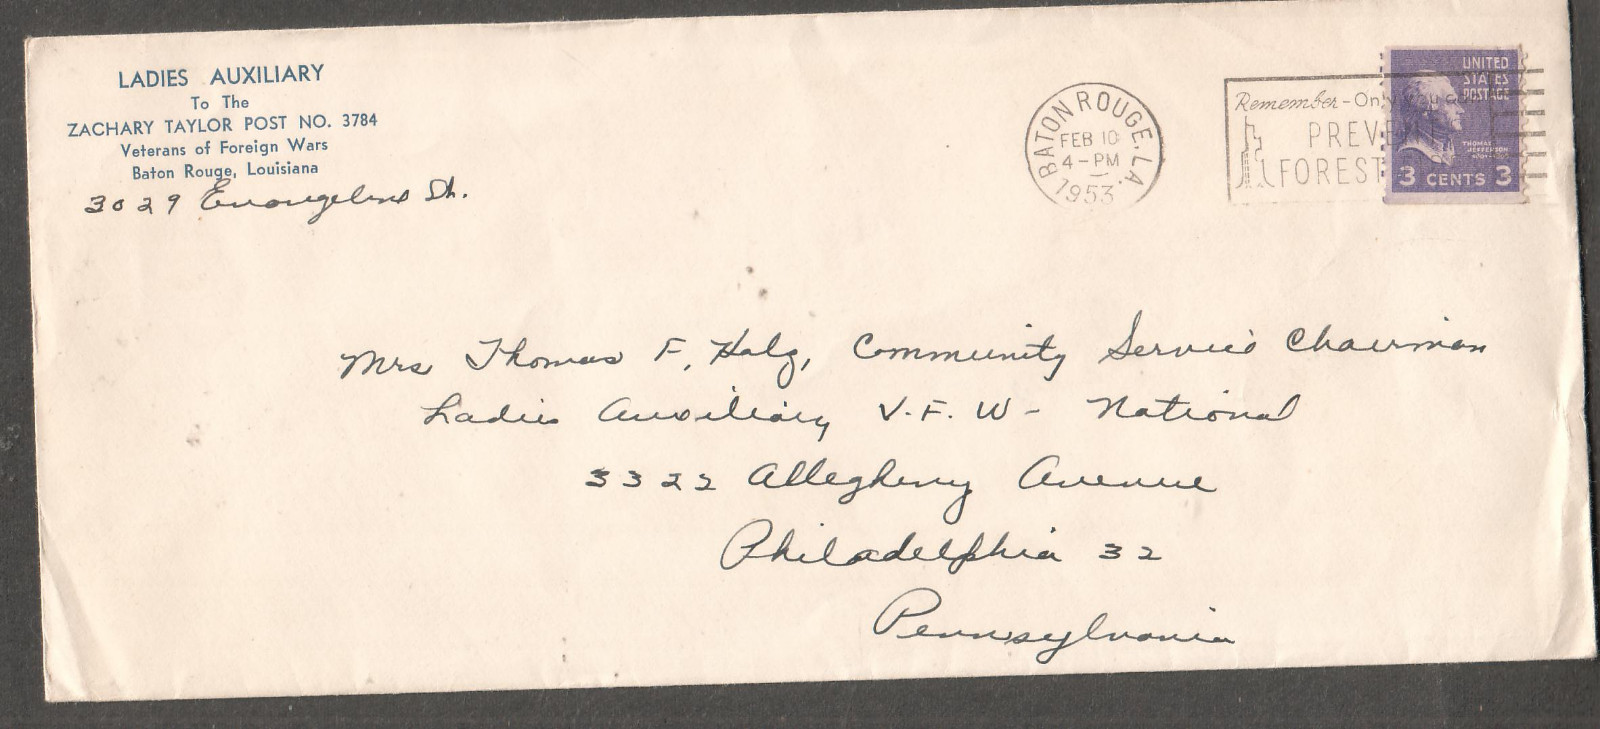 LADIES AUXILIARY
To The
ZACHARY TAYLOR POST NO. 3784
Veterans of Foreign Wars
Baton Rouge, Louisiana
3029 Evangeline St.
BATON ROUGE, LA.
FEB 10
4-PM
1953
Remember-Only you can
PREVENT
FOREST
UNITED
STATES
POSTAGE
THOMAS
JEFFERSON
3 CENTS 3
Mrs Thomas F. Holz, Community Service Chairman
Ladies Auxiliary V.F.W - National
3322 Allegheny Avenue
Philadelphia 32
Pennsylvania